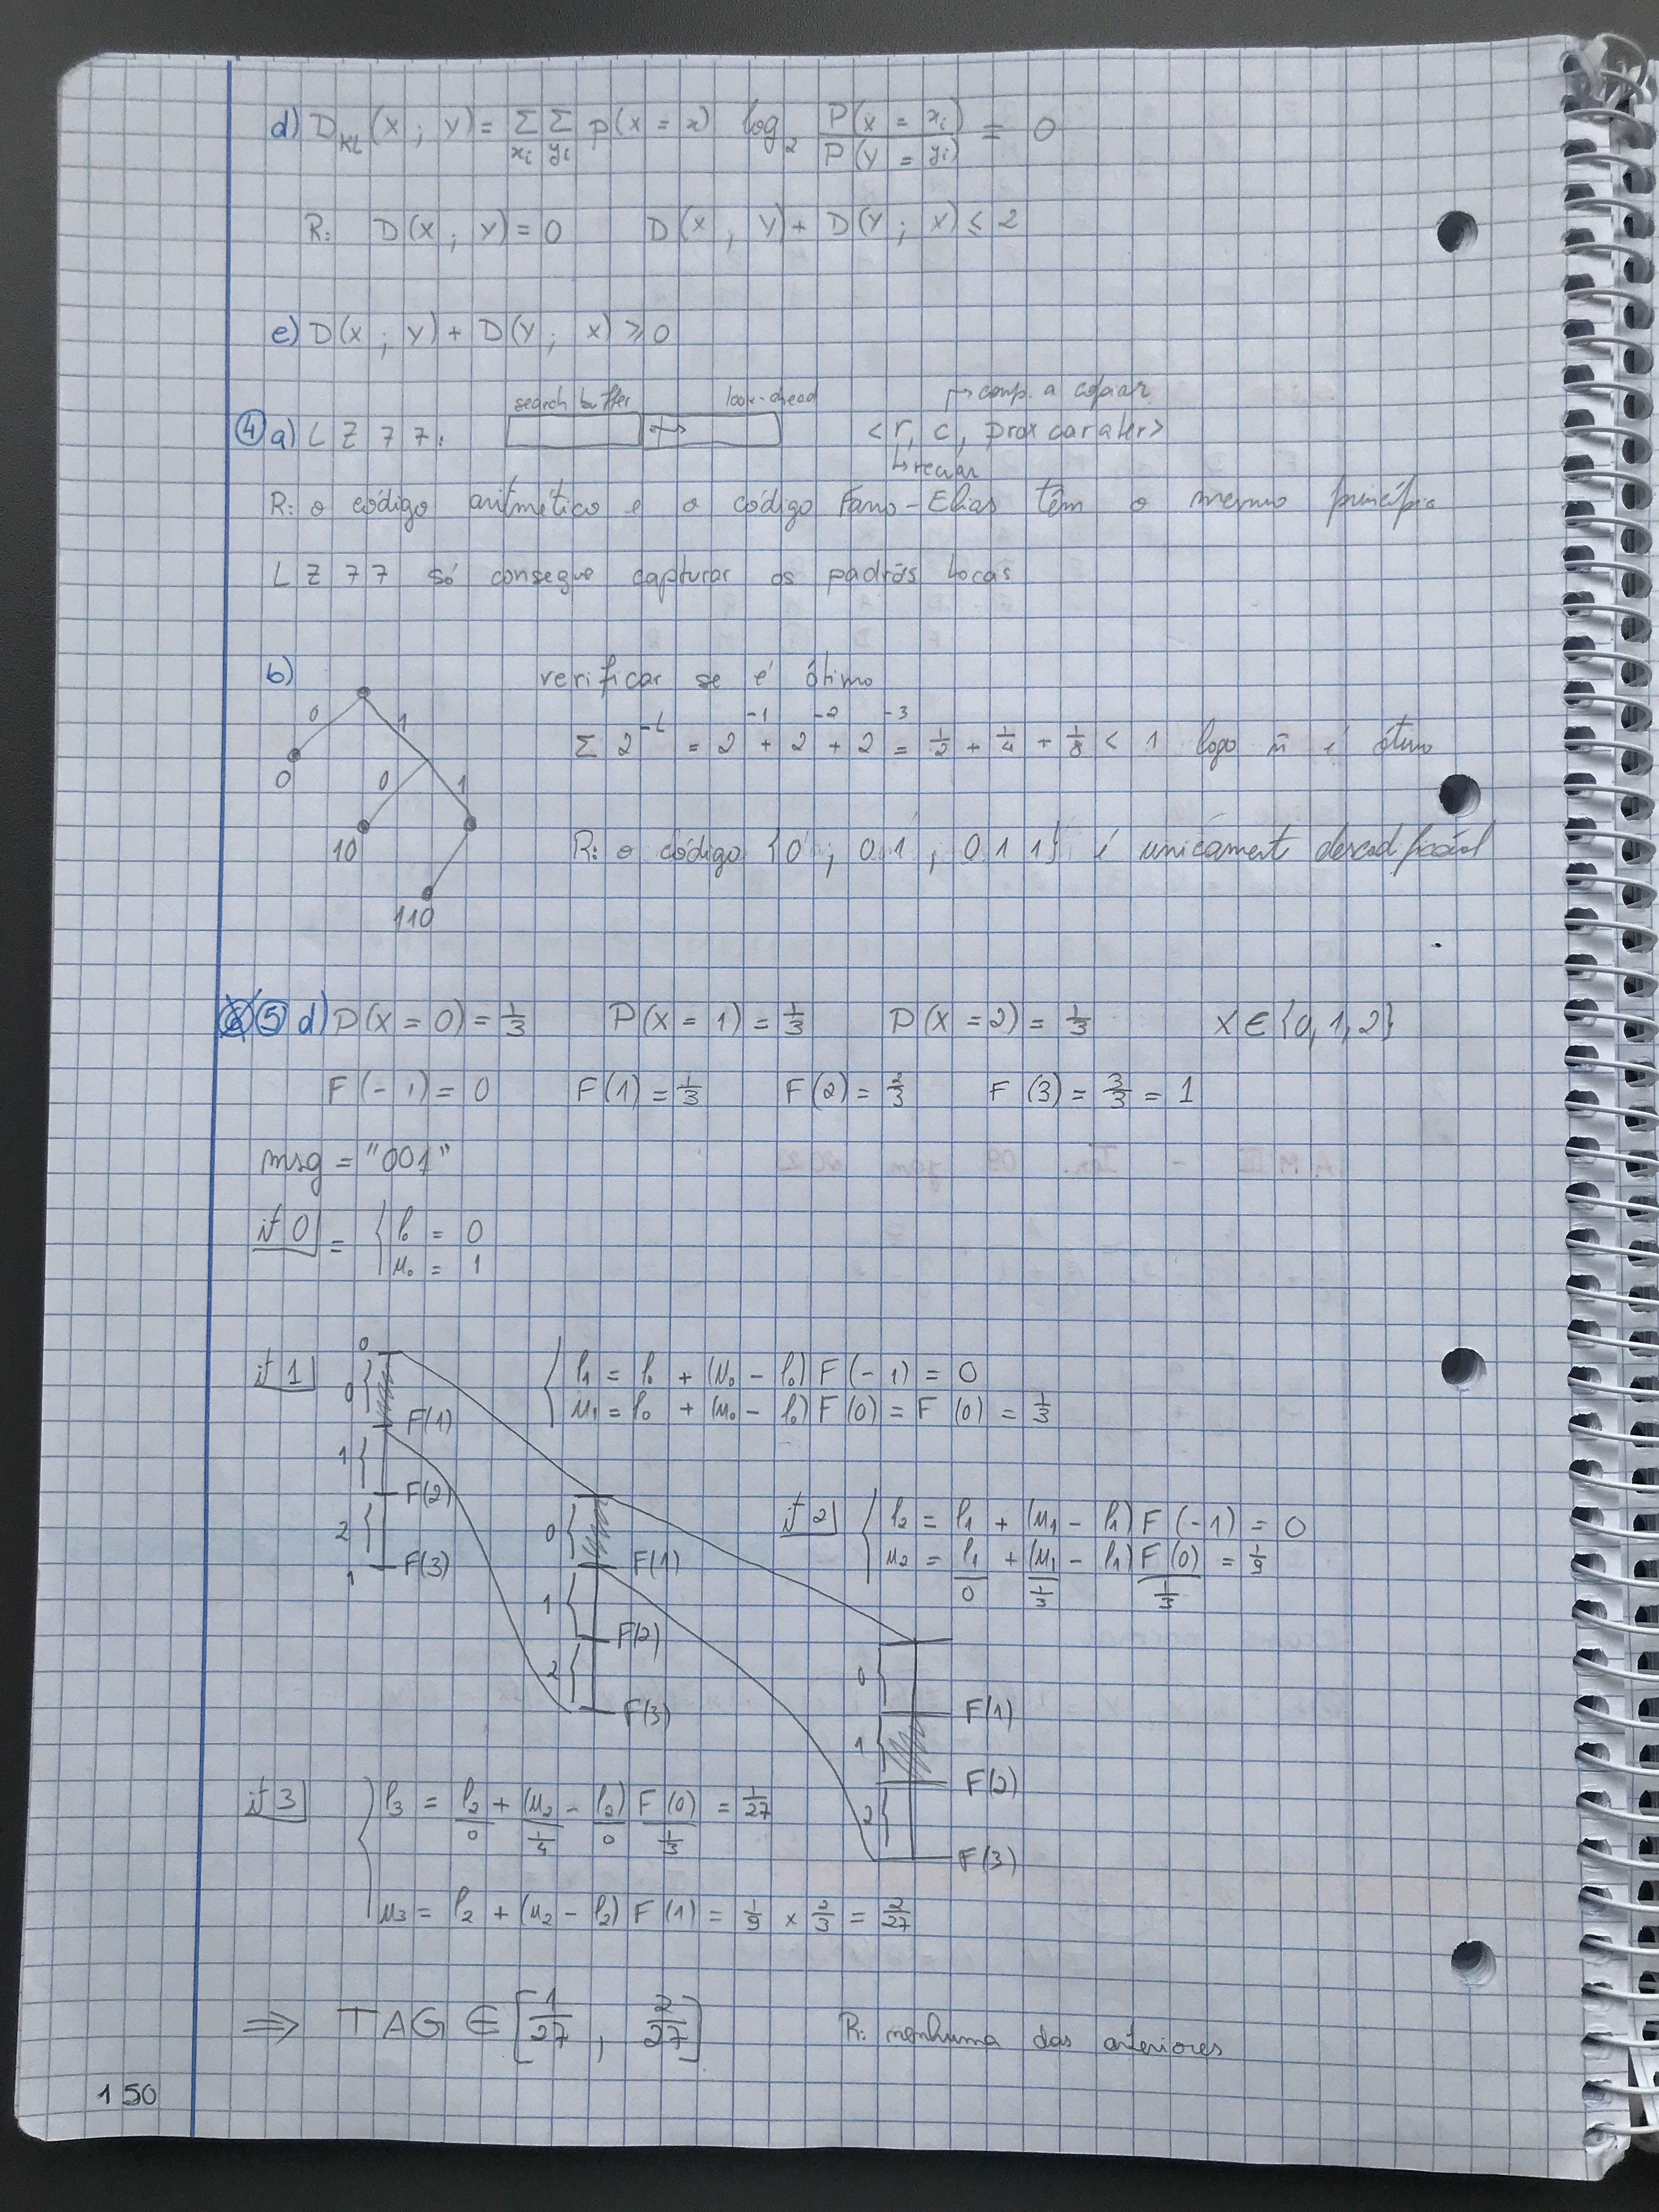 d) D_KL (X ; Y) = Σ_xi Σ_yi p(x = x) log_2 P(x = xi) / P(Y = yi) = 0
R: D(X ; Y) = 0 D(X ; Y) + D(Y ; X) ≤ 2
e) D(X ; Y) + D(Y ; X) ≥ 0
search buffer look-ahead ↱ comp. a copiar
④ a) LZ77: < r, c, prox caratér >
↳ recuar
R: o código aritmético e o código Fano-Elias têm o mesmo princípio
LZ77 só consegue capturar os padrões locais
b) verificar se é ótimo
0 1
Σ 2^-L = 2^-1 + 2^-2 + 2^-3 = 1/2 + 1/4 + 1/8 < 1 logo ñ é ótimo
0 0 1
10 R: o código {0 ; 01 ; 011} é unicamente descodificável
110
⑤ d) P(X = 0) = 1/3 P(X = 1) = 1/3 P(X = 2) = 1/3 X ∈ {0, 1, 2}
F(-1) = 0 F(1) = 1/3 F(2) = 2/3 F(3) = 3/3 = 1
msg = "001"
it 0 = { l0 = 0
u0 = 1
it 1 0 0 F(1) 1 F(2) 2 F(3) 1
{ l1 = l0 + (u0 - l0) F(-1) = 0
u1 = l0 + (u0 - l0) F(0) = F(0) = 1/3
0 F(1) 1 F(2) 2 F(3)
it 2 { l2 = l1 + (u1 - l1) F(-1) = 0
u2 = l1 + (u1 - l1) F(0) = 1/9
0 1/3 1/3
0 F(1) 1 F(2) 2 F(3)
it 3 { l3 = l2 + (u2 - l2) F(0) = 1/27
0 1/4 0 1/3
u3 = l2 + (u2 - l2) F(1) = 1/9 × 2/3 = 2/27
⇒ TAG ∈ [1/27 , 2/27] R: nenhuma das anteriores
150